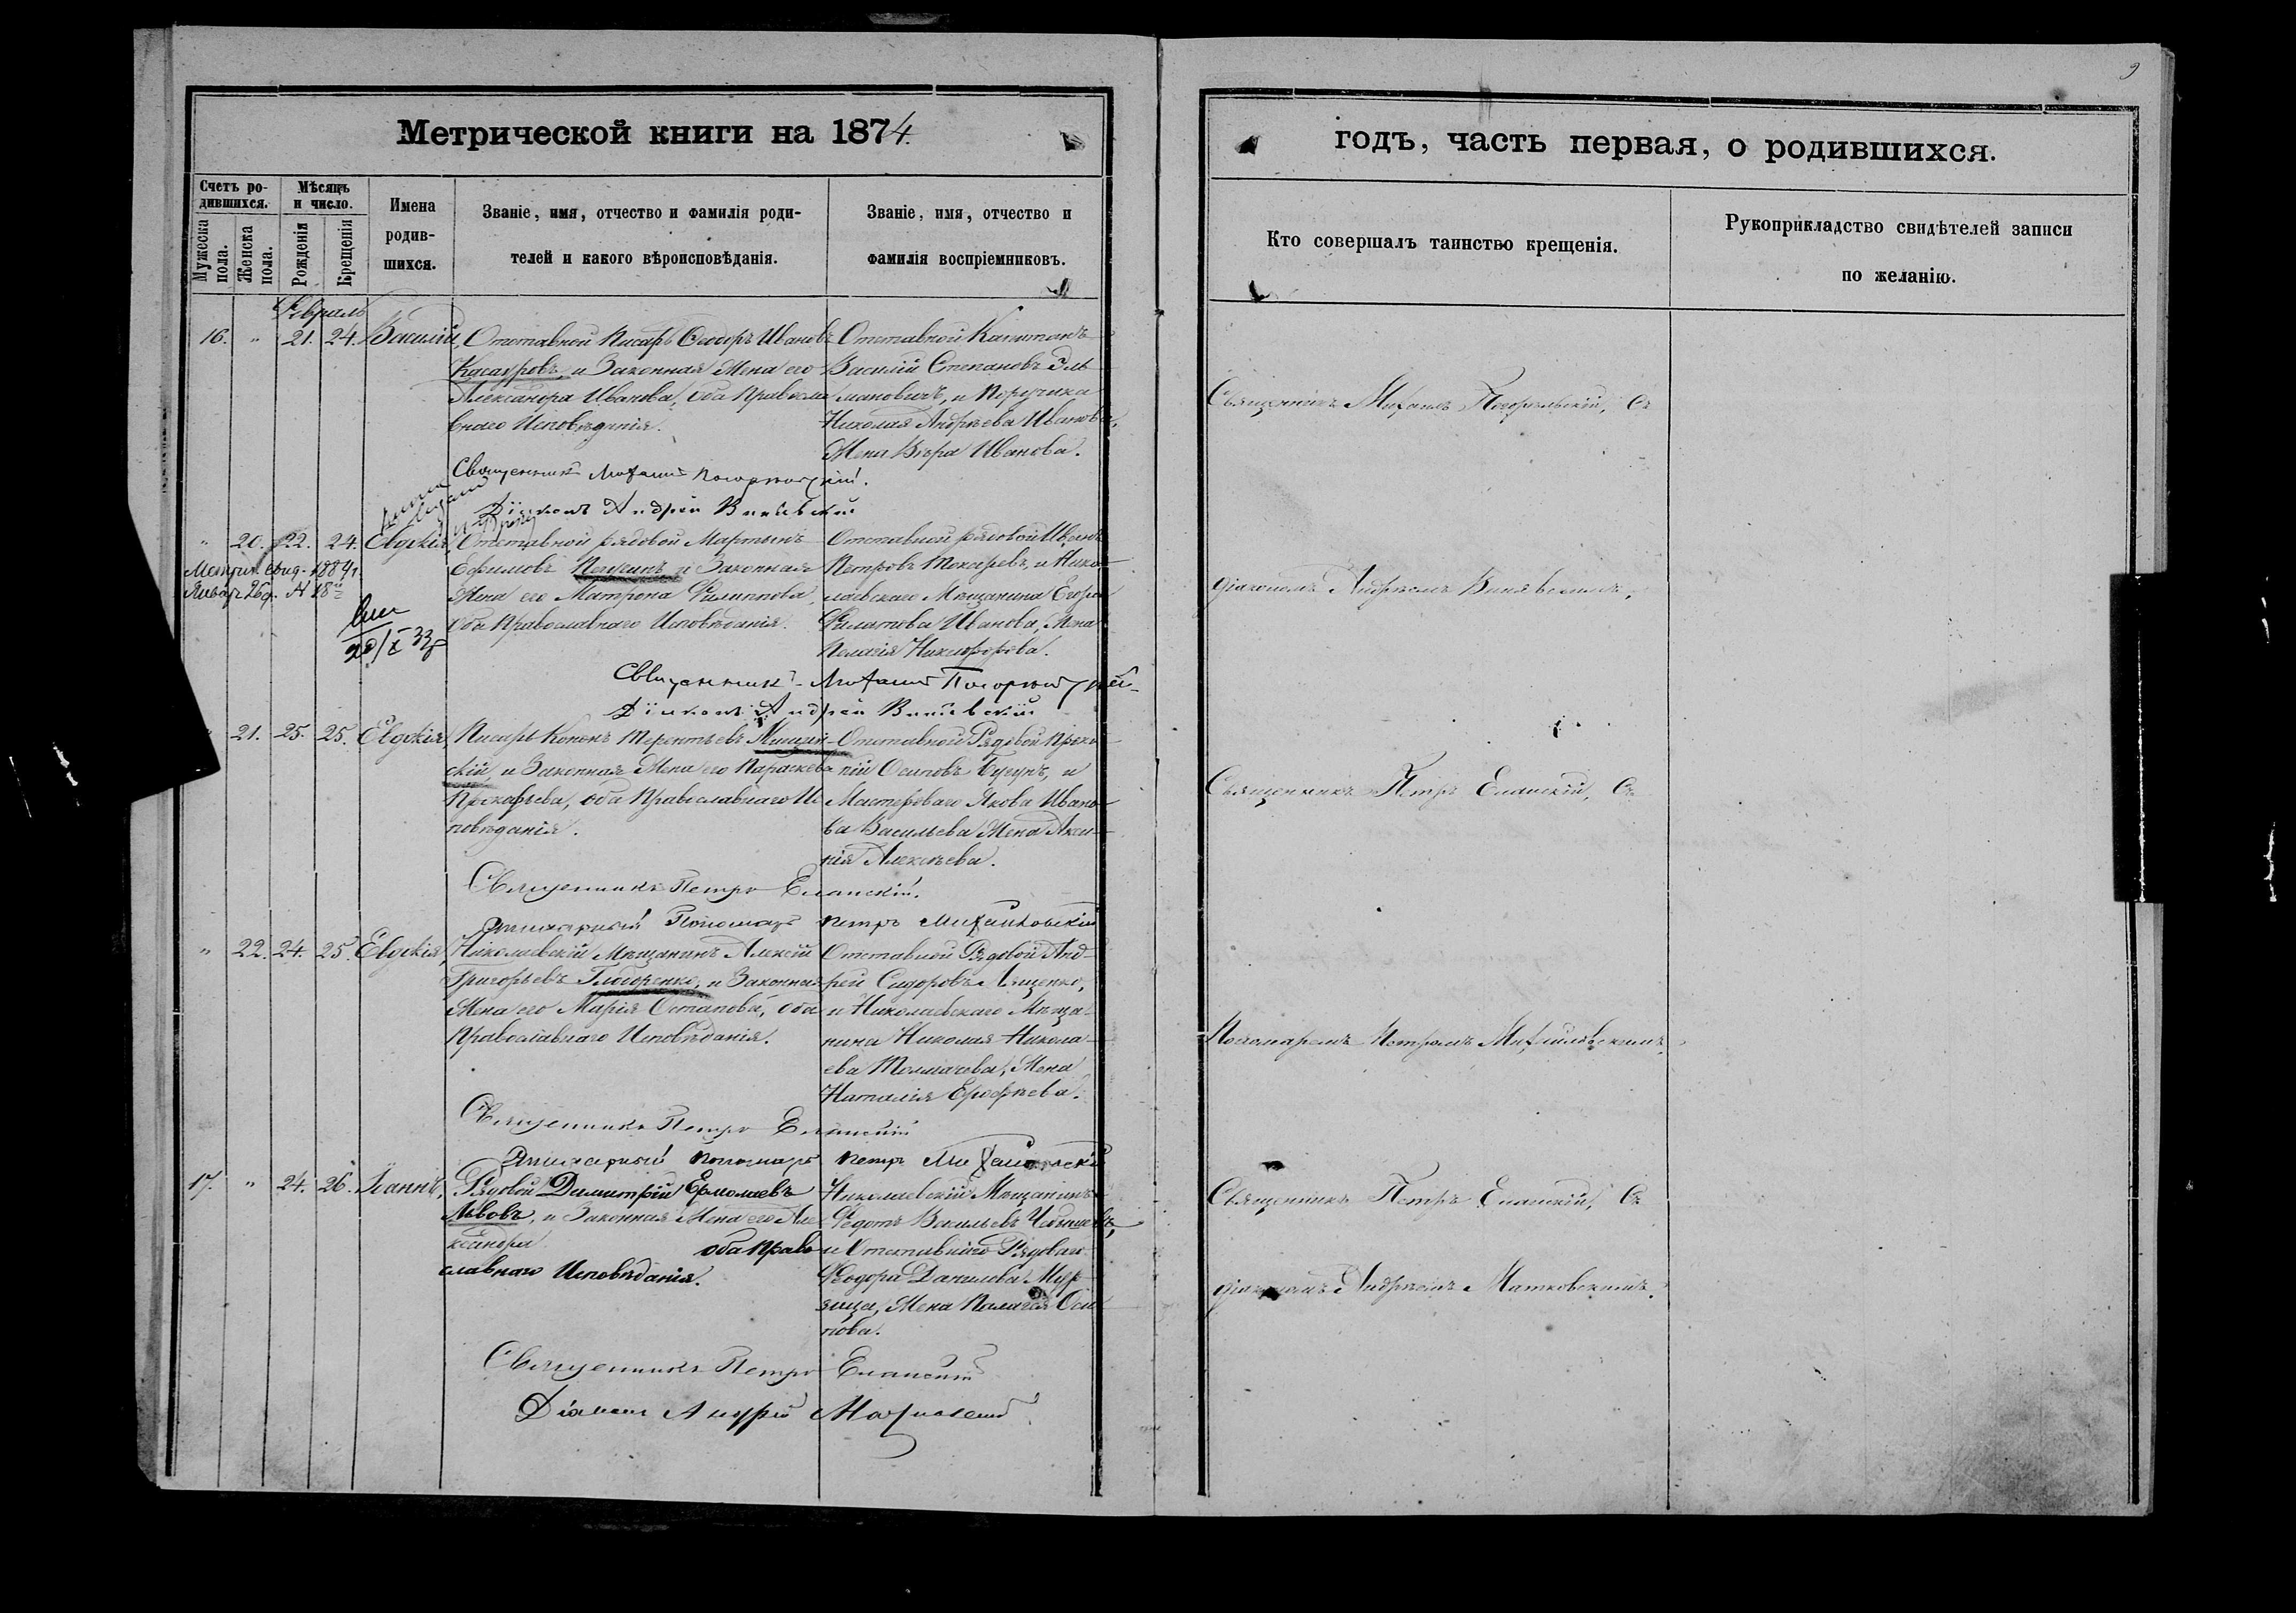 9
Метрической книги на 1874.
годъ, часть первая, о родившихся.
Счетъ родившихся.
Мужеска пола.
Женска пола.
Мѣсяцъ и число.
Рожденія
Крещенія
Имена родившихся.
Званіе, имя, отчество и фамилія родителей и какого вѣроисповѣданія.
Званіе, имя, отчество и фамилія воспріемниковъ.
Кто совершалъ таинство крещенія.
Рукоприкладство свидѣтелей записи по желанію.
Февраль
16. " 21. 24. Василій,
Отставной Писарь Ѳеодоръ Ивановъ
и Законная Жена его
Александра Иванова, оба Правосла
внаго Исповѣданія.
Отставной Капитанъ
Василій Степановъ Эль
мановичъ, и Поручика
Николая Андреева Иванова,
Жена Вѣра Иванова.
Священникъ Михаилъ Погорѣльскій, съ
Священникъ Михаилъ Погорѣльскій.
Діаконъ Андрей
" 20. 22. 24. Евдокія,
Метрич. свид. 1889 г.
Январ. 26 д. № 28
Отставной рядовой Мартынъ
Ефимовъ и Законная
Жена его Матрона Филиппова,
оба Православнаго Исповѣданія.
Отставной рядовой Иванъ
Петровъ Токаревъ, и Нико
лаевскаго Мѣщанина Егора
Филатова Иванова, Жена
Пелагія Никифорова.
діакономъ Андреемъ
Священникъ Михаилъ Погорѣльскій
Діаконъ Андрей
21. 25. 25. Евдокія,
Писарь Кононъ Терентьевъ
скій, и Законная Жена его Параскева
Прокофьева, оба Православнаго Ис
повѣданія.
Отставной Рядовой Проко
пій Осиповъ Бугунъ, и
Мастероваго Якова Ивано
ва Васильева Жена Аксе
нія Алексѣева.
Священникъ Петръ Еланскій, съ
Священникъ Петръ Еланскій.
Пономарь Петръ Михайловскій
" 22. 24. 25. Евдокія,
Николаевскій Мѣщанинъ Алексій
Григорьевъ и Законная
Жена его Марія Остапова, оба
Православнаго Исповѣданія.
Отставной Рядовой Анд
рей Сидоровъ Лященко,
и Николаевскаго Мѣща
нина Николая Никола
ева Толмачева, Жена
Наталія Ерофѣева.
Пономаремъ Петромъ Михайловскимъ.
Священникъ Петръ Еланскій
Пономарь Петръ Михайловскій
17. " 24. 26. Іоаннъ,
Рядовой Димитрій Ермолаевъ
Львовъ, и Законная Жена его Але
ксандра оба Право
славнаго Исповѣданія.
Николаевскій Мѣщанинъ
Ѳедотъ Васильевъ Чебышевъ,
и Отставнаго Рядоваго
Ѳеодора Данилова
Жена Пелагія Оси
пова.
Священникъ Петръ Еланскій, съ
діакономъ Андреемъ Матковскимъ.
Священникъ Петръ Еланскій
Діаконъ Андрей Матковскій